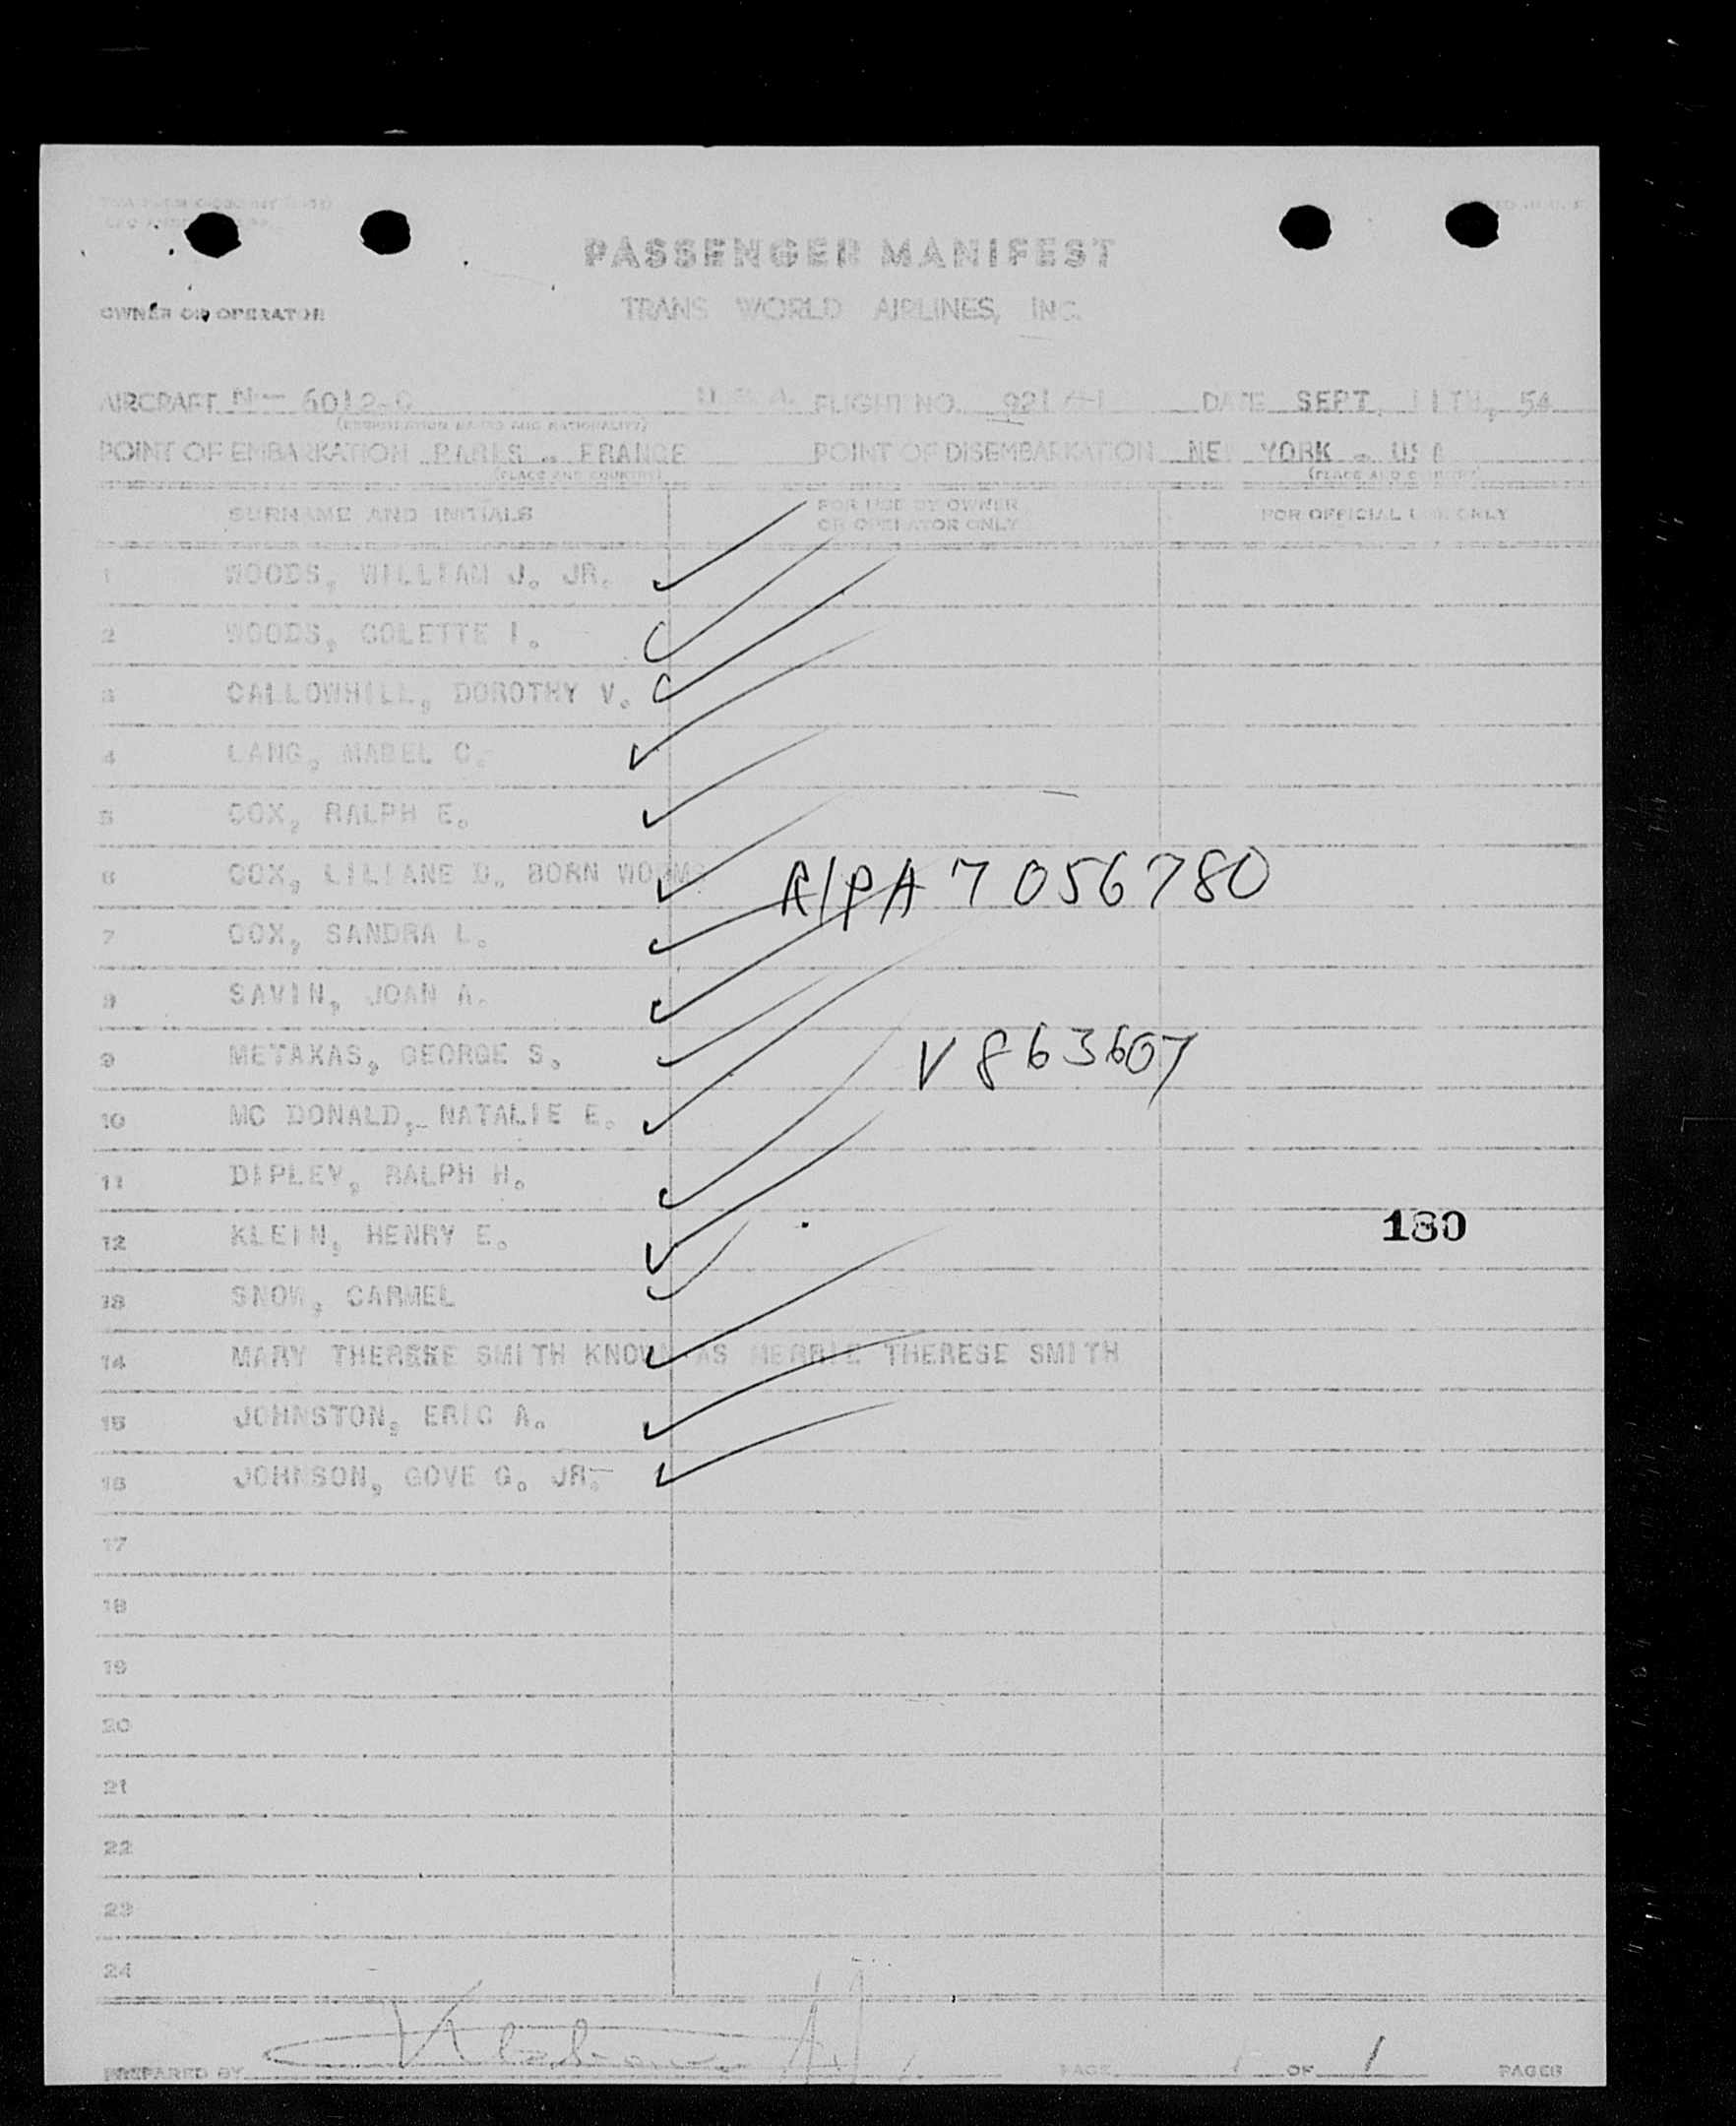 PASSENGER MANIFEST
OWNER OR OPERATOR TRANS WORLD AIRLINES, INC.
AIRCRAFT N- 6012-C U.S.A. FLIGHT NO. 921 DATE SEPT. 11TH, 54
(REGISTRATION MARKS AND NATIONALITY)
POINT OF EMBARKATION PARIS - FRANCE POINT OF DISEMBARKATION NEW YORK - USA
(PLACE AND COUNTRY) (PLACE AND COUNTRY)
SURNAME AND INITIALS FOR USE BY OWNER OR OPERATOR ONLY FOR OFFICIAL USE ONLY
1 WOODS, WILLIAM J. JR.
2 WOODS, COLETTE I.
3 CALLOWHILL, DOROTHY V.
4 LANG, MABEL C.
5 COX, RALPH E.
6 COX, LILIANE D. BORN WORMS A/PA 7 056780
7 COX, SANDRA L.
8 SAVIN, JOAN A.
9 METAXAS, GEORGE S. V 863607
10 MC DONALD, NATALIE E.
11 DIPLEY, RALPH H.
12 KLEIN, HENRY E. 180
13 SNOW, CARMEL
14 MARY THERESE SMITH KNOWN AS MERRIE THERESE SMITH
15 JOHNSTON, ERIC A.
16 JOHNSON, GOVE G. JR.
17
18
19
20
21
22
23
24
PREPARED BY PAGE 1 OF 1 PAGES